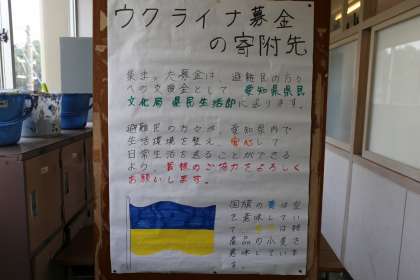 ウクライナ募金
の寄附先
集まった募金は、避難民の方々
への支援金として 愛知県県民
文化局 県民生活部に送ります。
避難民の方々が、愛知県内で
生活環境を整え、安心して
日常生活を送ることができる
よう、皆様のご協力をよろしく
お願いします。
国旗の青は空
を意味してい
て、黄色は特
産品の小麦を
意味していま
す。